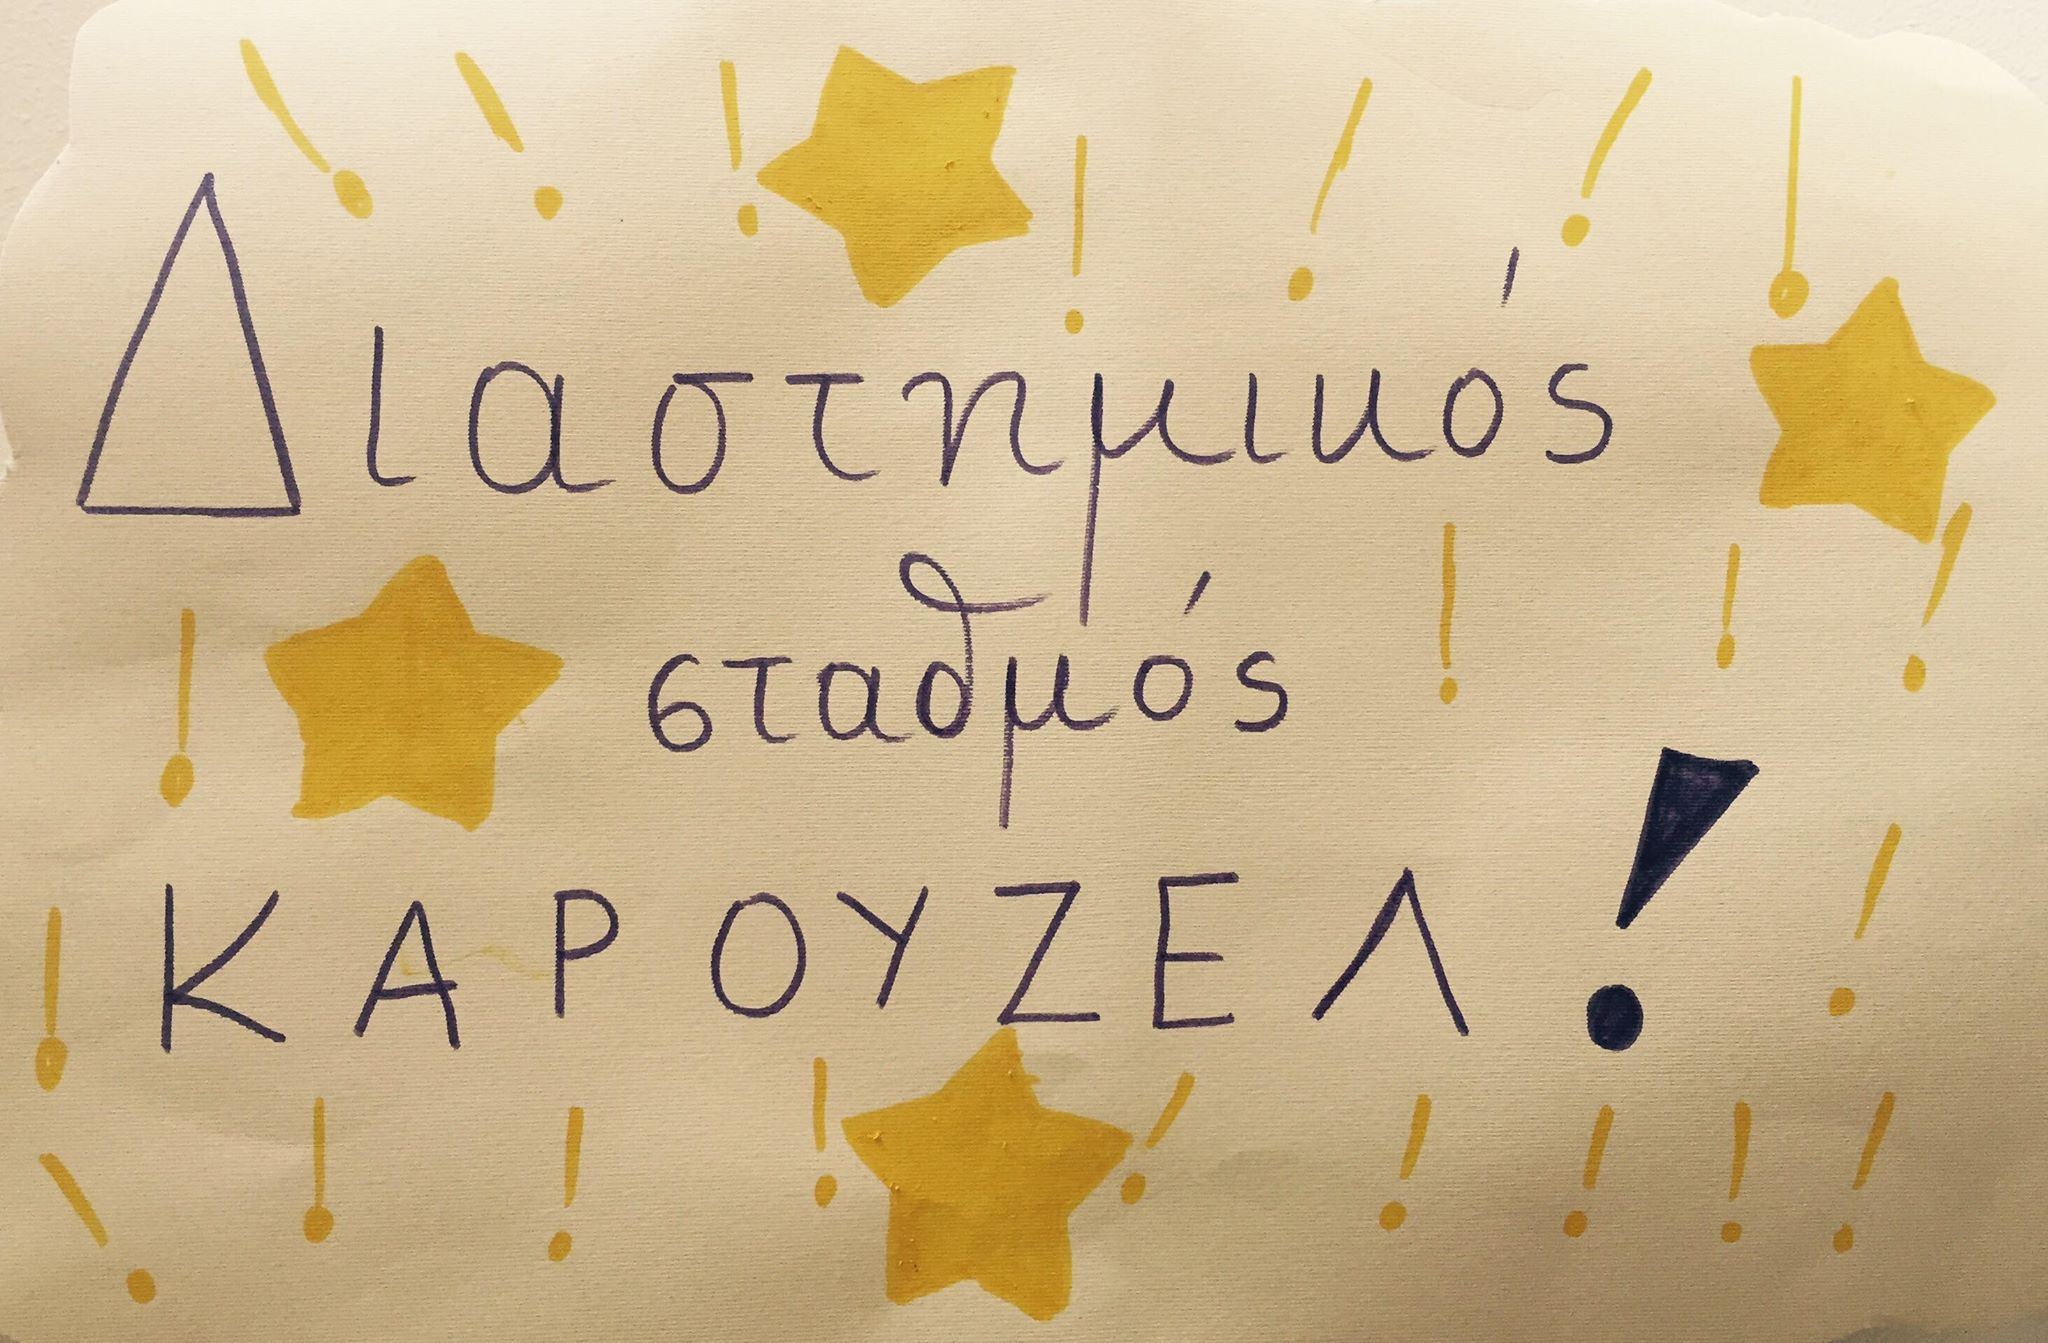 Διαστημικός
σταθμός
ΚΑΡΟΥΖΕΛ!